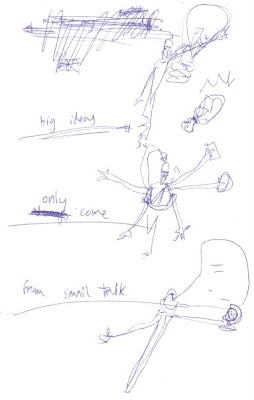 big ideas
only come
from small talk